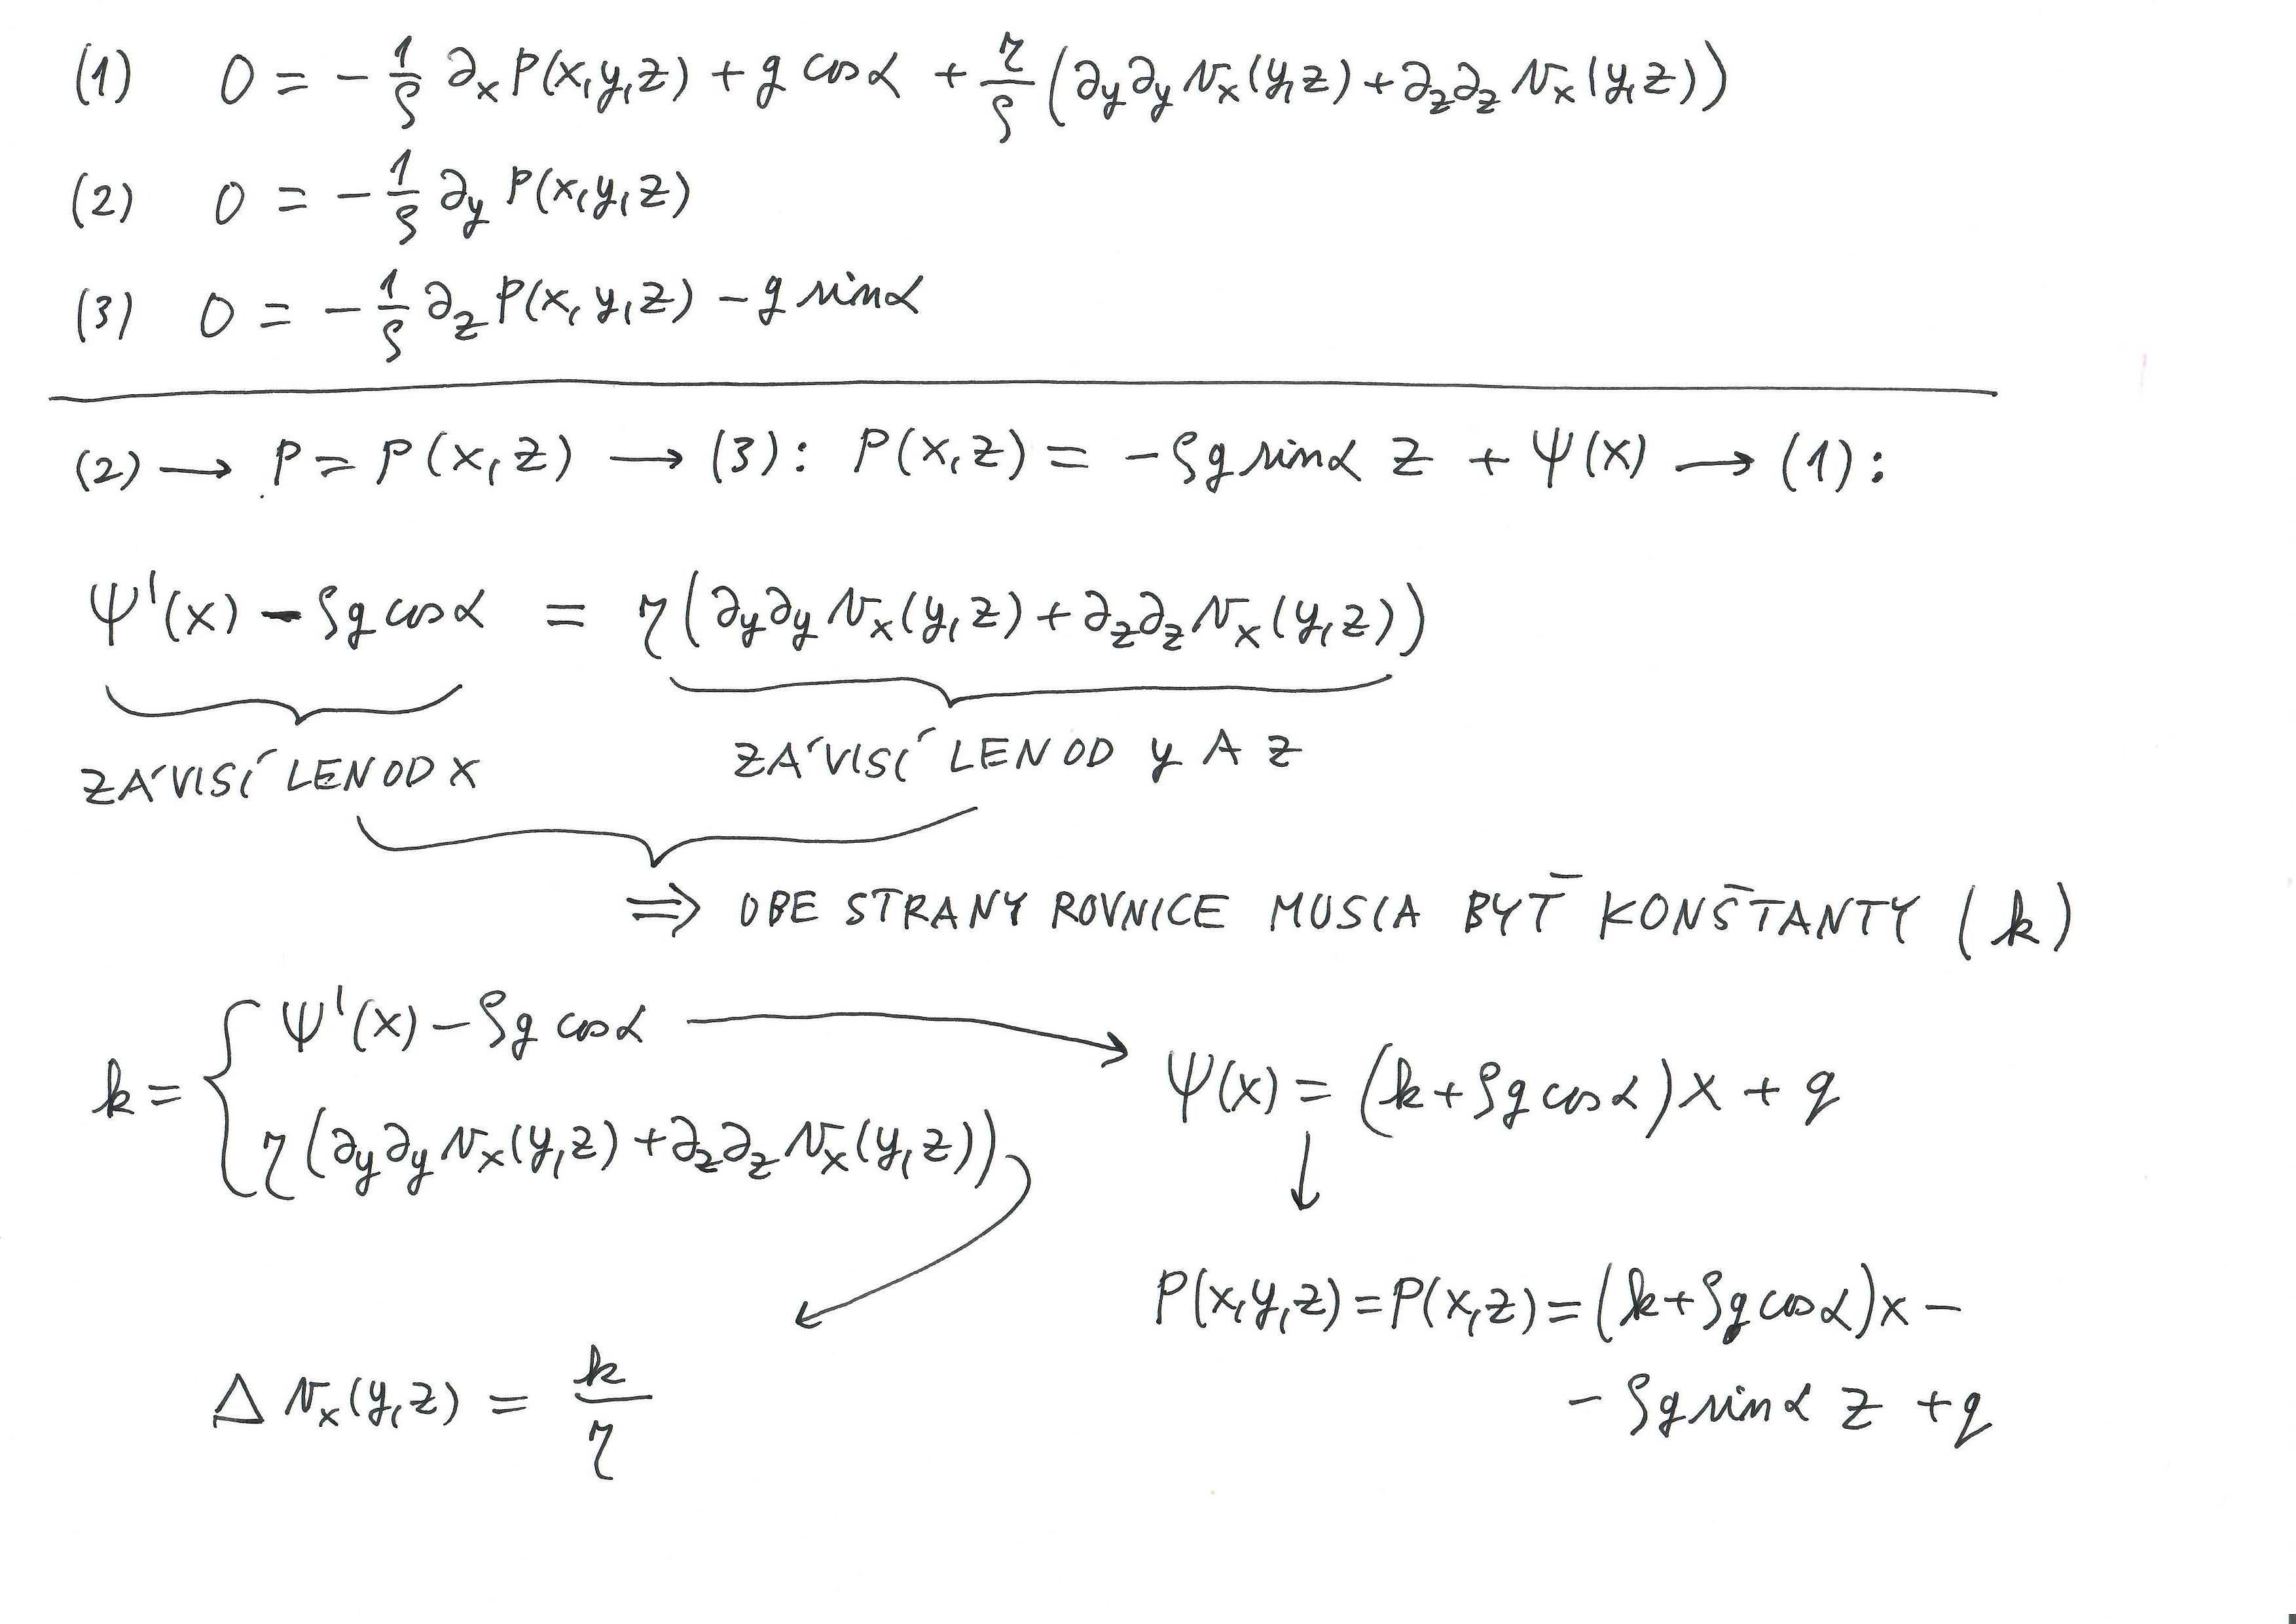 (1) 0 = - 1/ρ ∂x p(x,y,z) + g cosα + η/ρ (∂y∂y vx(y,z) + ∂z∂z vx(y,z))
(2) 0 = - 1/ρ ∂y p(x,y,z)
(3) 0 = - 1/ρ ∂z p(x,y,z) - g sinα
(2) → p = p(x,z) → (3): p(x,z) = -ρg sinα z + Ψ(x) → (1):
Ψ'(x) - ρg cosα = η(∂y∂y vx(y,z) + ∂z∂z vx(y,z))
ZÁVISÍ LEN OD X ZÁVISÍ LEN OD y A z
⇒ OBE STRANY ROVNICE MUSIA BYŤ KONŠTANTY (k)
k = { Ψ'(x) - ρg cosα → Ψ(x) = (k + ρg cosα)x + q
η(∂y∂y vx(y,z) + ∂z∂z vx(y,z)) ↓
p(x,y,z) = p(x,z) = (k + ρg cosα)x -
Δ vx(y,z) = k/η - ρg sinα z + q